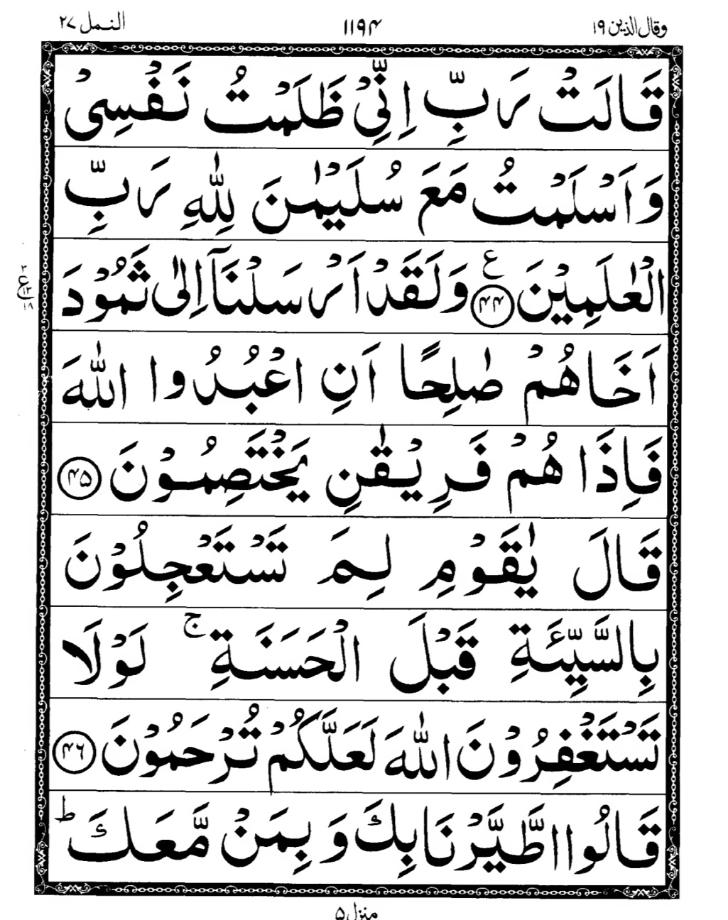 وقال الذین ۱۹ ۱۱۹۴ النمل ۲۷
قَالَتْ رَبِّ اِنِّیْ ظَلَمْتُ نَفْسِیْ
وَاَسْلَمْتُ مَعَ سُلَیْمٰنَ لِلّٰهِ رَبِّ
الْعٰلَمِیْنَ ۴۴ ع وَلَقَدْ اَرْسَلْنَاۤ اِلٰی ثَمُوْدَ
اَخَاهُمْ صٰلِحًا اَنِ اعْبُدُوا اللّٰهَ
فَاِذَا هُمْ فَرِیْقٰنِ یَخْتَصِمُوْنَ ۴۵
قَالَ یٰقَوْمِ لِمَ تَسْتَعْجِلُوْنَ
بِالسَّیِّئَةِ قَبْلَ الْحَسَنَةِ ۚ لَوْلَا
تَسْتَغْفِرُوْنَ اللّٰهَ لَعَلَّكُمْ تُرْحَمُوْنَ ۴۶
قَالُوا اطَّیَّرْنَا بِكَ وَ بِمَنْ مَّعَكَ ؕ
منزل ۵